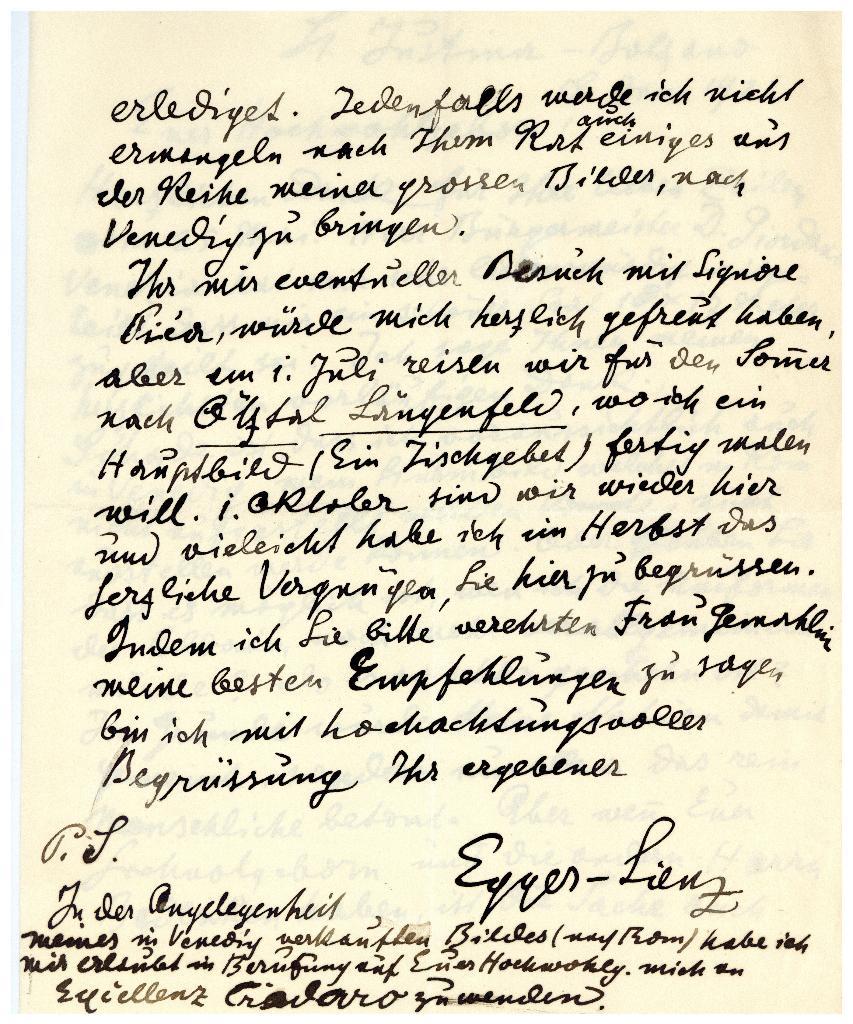 erlediget. Jedenfalls werde ich nicht
ermangeln nach Ihem Rat auch einiges aus
der Reihe meiner grossen Bilder, nach
Venedig zu bringen.
Ihr mir eventueller Besuch mit Signore
würde mich herzlich gefreut haben,
aber am 1. Juli reisen wir für den Som̄er
nach Ötztal Längenfeld, wo ich ein
Hauptbild (Ein Tischgebet) fertig malen
will. 1. Oktober sind wir wieder hier
und vieleicht habe ich im Herbst das
herzliche Vergnügen, Sie hier zu begrüssen.
Indem ich Sie bitte verehrten Frau Gemahlin
meine besten Empfehlungen zu sagen
bin ich mit hochachtungsvoller
Begrüssung Ihr ergebener
Egger-Lienz
P.S.
In der Angelegenheit
meines in Venedig verkauften Bildes (nach Rom) habe ich
mir erlaubt in Berufung auf Euer Hochwohlg. mich an
Excellenz Cradaro zu wenden.